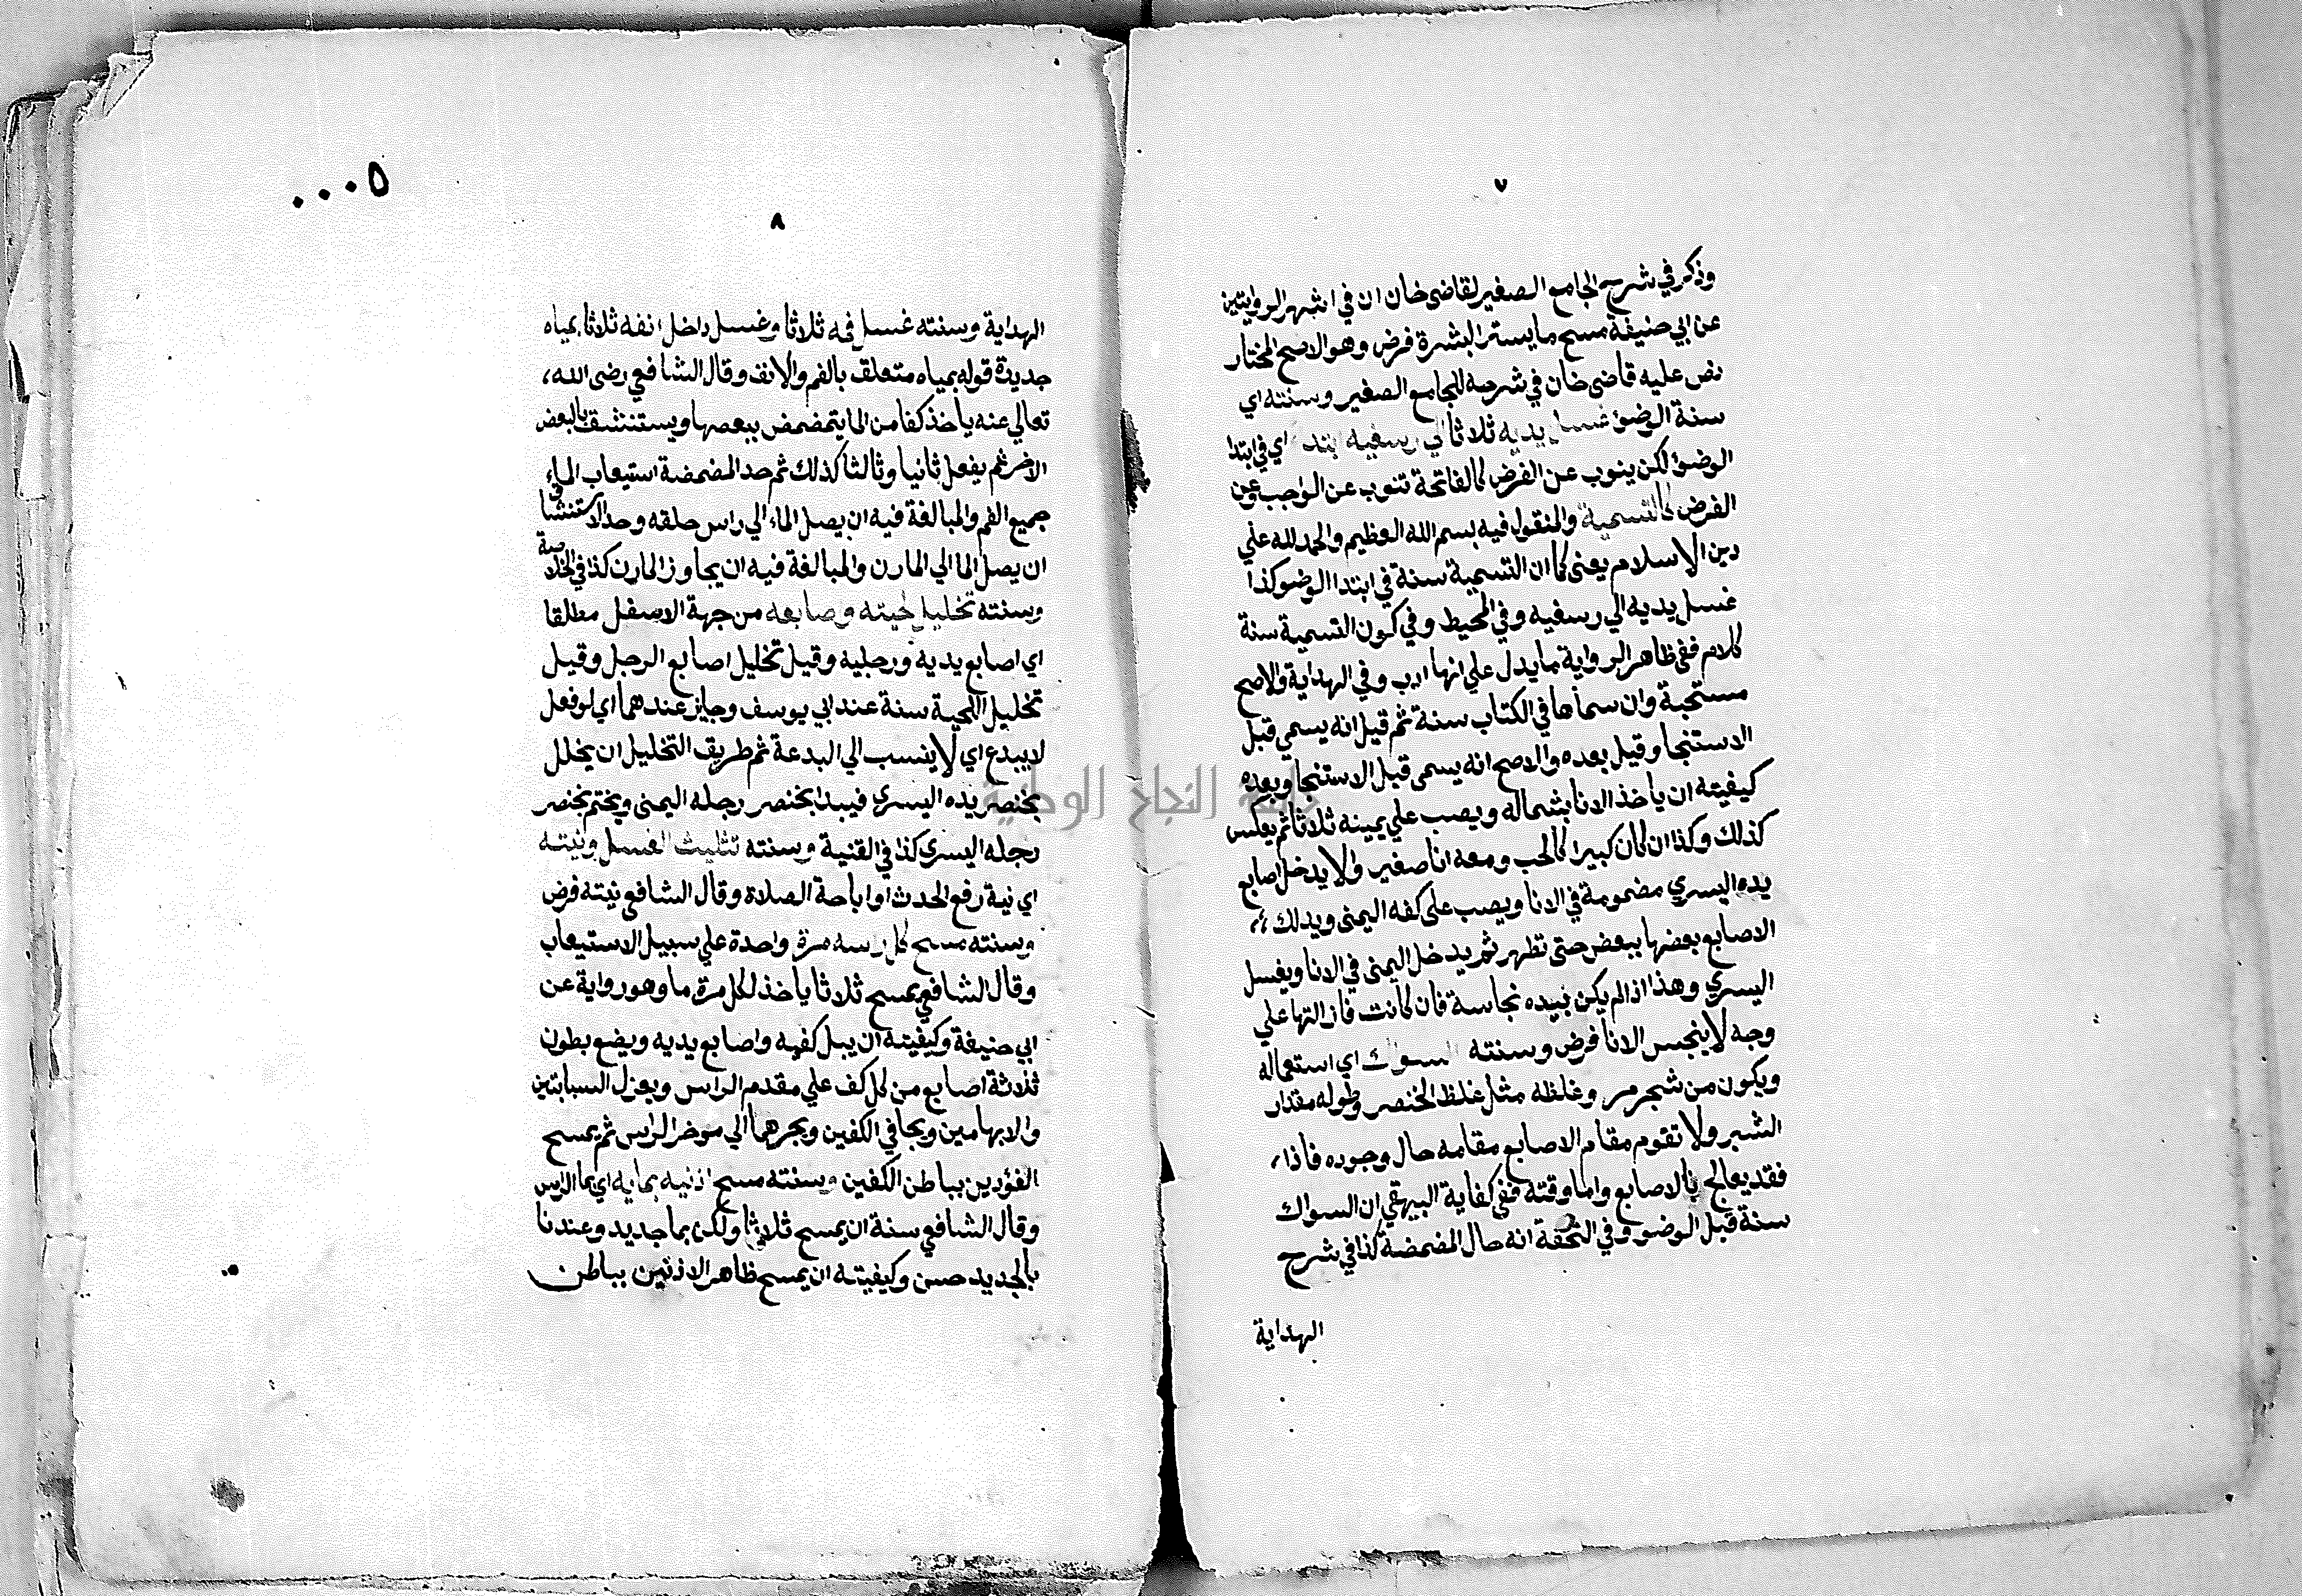 ٧
وذكر في شرح الجامع الصغير لقاضى خان ان في اشهر الروايتين
عن ابي حنيفة مسح ما يستر البشرة فرض وهو الاصح المختار
نص عليه قاضى خان في شرحه للجامع الصغير وسنته اي
سنة الوضوء غسل يديه ثلاثا الي رسغيه ابتداء اي في ابتدا
الوضوء لكن ينوب عن الفرض كالفاتحة تنوب عن الواجب وعن
الفرض كالتسمية والمنقول فيه بسم الله العظيم والحمد لله علي
دين الاسلام يعنى كما ان التسمية سنة في ابتدا الوضو كذا
غسل يديه الي رسغيه وفي المحيط وفي كون التسمية سنة
كلام ففى ظاهر الرواية ما يدل علي انها ادب وفي الهداية والاصح
مستحبة وان سماها في الكتاب سنة ثم قيل انه يسمي قبل
الاستنجا وقيل بعده والاصح انه يسمى قبل الاستنجا وبعده
كيفيته ان ياخذ الانا بشماله ويصب علي يمينه ثلاثا ثم يعكس
كذلك وكذا ان كان كبيرا كالحب ومعه انا صغير والا يدخل اصابع
يده اليسري مضمومة في الانا ويصب على كفه اليمنى ويدلك
الاصابع بعضها ببعض حتى تطهر ثم يدخل اليمنى في الانا ويغسل
اليسري وهذا اذا لم يكن بيده نجاسة فان كانت فازالتها علي
وجه لا ينجس الانا فرض وسنته السواك اي استعماله
ويكون من شجر مر وغلظه مثل غلظ الخنصر وطوله مقدار
الشبر ولا تقوم مقام الاصابع مقامه حال وجوده فاذا
فقد يعالج بالاصابع واما وقته ففى كفاية البيهقي ان السواك
سنة قبل الوضو وفي التحفة انه حال المضمضة كذا في شرح
الهداية
٠٠٠٥
٨
الهداية وسنته غسل فمه ثلاثا وغسل داخل انفه ثلاثا بمياه
جديدة قوله بمياه متعلق بالفم والانف وقال الشافعي رضى الله
تعالي عنه ياخذ كفا من الما يتمضمض ببعضها ويستنشق بالبعض
الاخر ثم يفعل ثانيا وثالثا كذلك ثم حد المضمضة استيعاب الماء
جميع الفم والمبالغة فيه ان يصل الماء الي راس حلقه وحد الاستنشاق
ان يصل الما الي المارن والمبالغة فيه ان يجاوز المارن كذا في الخلاصة
وسنته تخليل لحيته واصابعه من جهة الاسفل مطلقا
اي اصابع يديه ورجليه وقيل تخليل اصابع الرجل وقيل
تخليل اللحية سنة عند ابي يوسف وجايز عندهما اي لو فعل
لا يبدع اي لا ينسب الي البدعة ثم طريق التخليل ان يخلل
بخنصر يده اليسري فيبدا بخنصر رجله اليمنى ويختم بخنصر
رجله اليسري كذا في القنية وسنته تثليث الغسل ونيته
اي نية رفع الحدث او اباحة الصلاة وقال الشافعي نيته فرض
وسنته مسح كل راسه مرة واحدة علي سبيل الاستيعاب
وقال الشافعي يمسح ثلاثا ياخذ لكل مرة ما وهو رواية عن
ابي حنيفة وكيفيته ان يبل كفيه واصابع يديه ويضع بطون
ثلاثة اصابع من كل كف علي مقدم الراس ويعزل السبابتين
والابهامين ويجافي الكفين ويجرهما الي موخر الراس ثم يمسح
الفؤدين بباطن الكفين وسنته مسح اذنيه بمايه اي بما الراس
وقال الشافعي سنة ان يمسح ثلاثا ولكن بما جديد وعندنا
بالجديد حسن وكيفيته ان يمسح ظاهر الاذنين بباطن
جامعة النجاح الوطنية